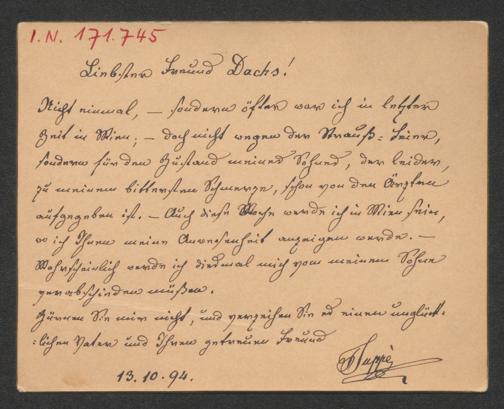 I. N. 171.745
Liebster Freund Dachs!
Nicht einmal, — sondern öfter war ich in letzter
Zeit in Wien; — doch nicht wegen der Strauß-Feier,
sondern für den Zustand meines Sohnes, der leider,
zu meinem bittersten Schmerze, schon von den Ärzten
aufgegeben ist. — Auch diese Woche werde ich in Wien sein,
wo ich Ihnen meine Anwesenheit anzeigen werde. —
Wahrscheinlich werde ich diesmal mich von meinem Sohne
verabschieden müßen.
Zürnen Sie mir nicht, und verzeihen Sie es einem unglück-
-lichen Vater und Ihrem getreuen Freund
Suppè
13.10.94.